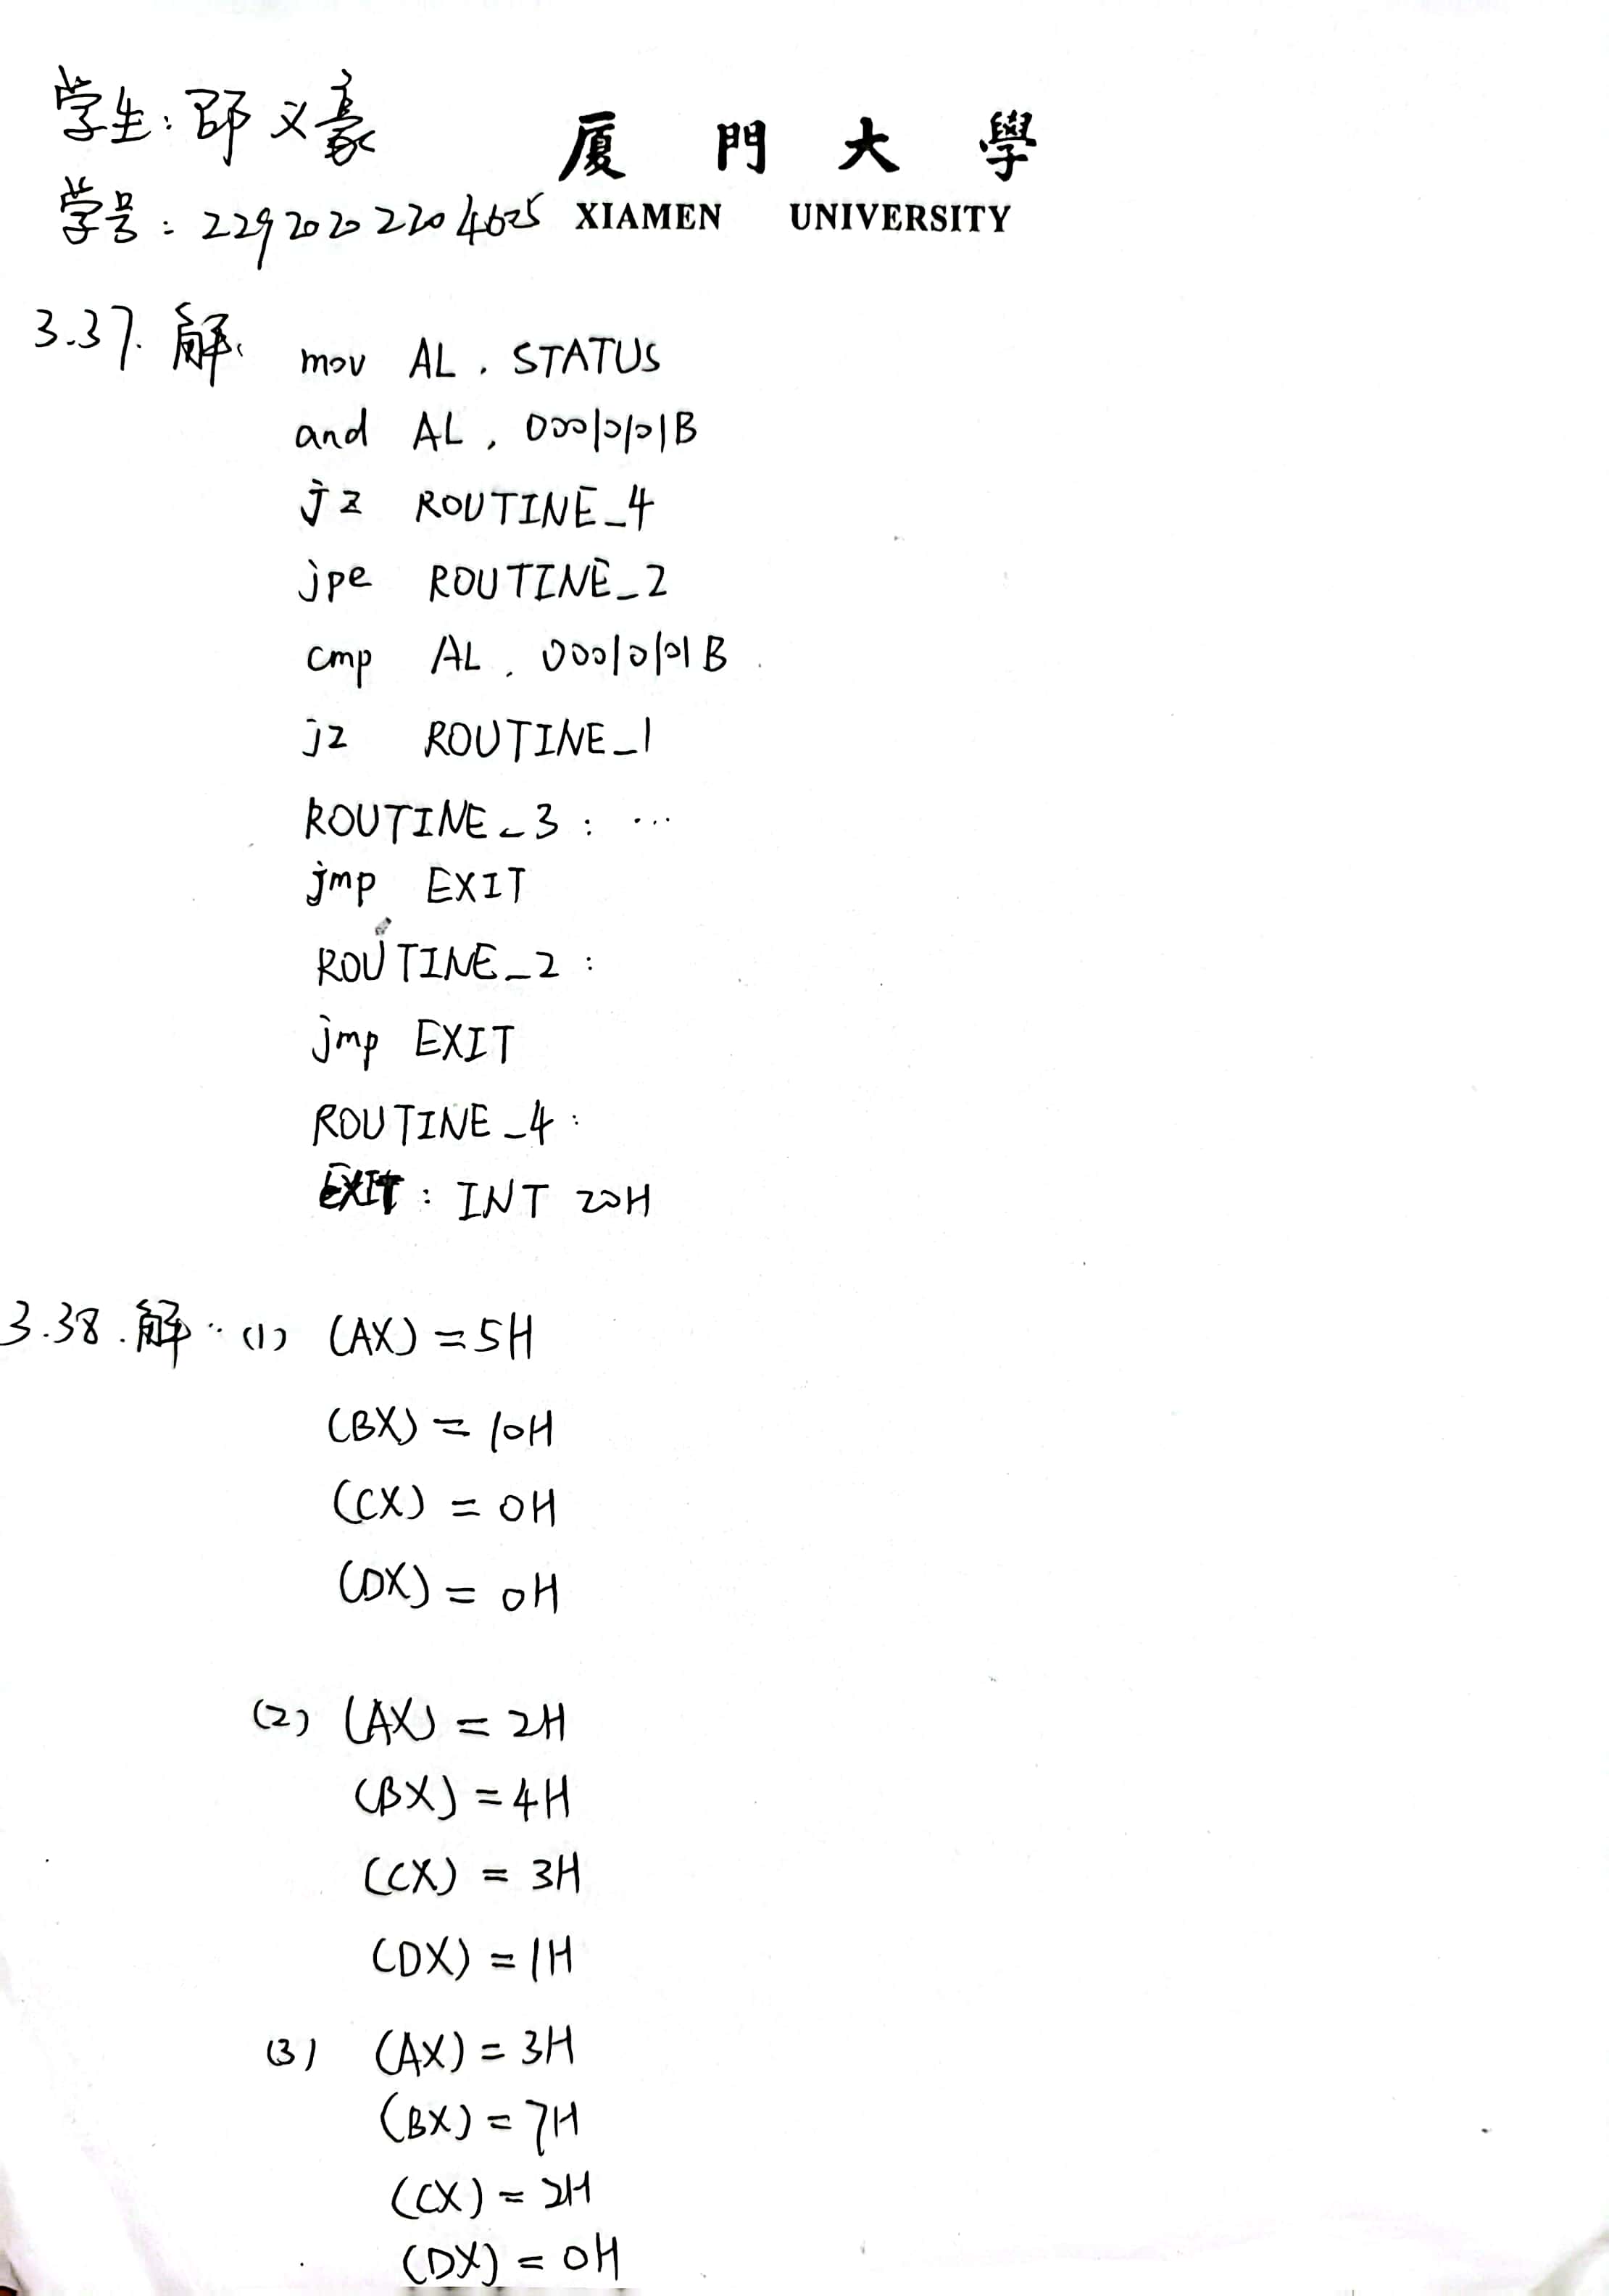 学生:邵义豪
厦門大學
学号:22920202204625 XIAMEN UNIVERSITY
3.37.解:
mov AL, STATUS
and AL, 00010101B
jz ROUTINE_4
jpe ROUTINE_2
cmp AL, 00010101B
jz ROUTINE_1
ROUTINE_3: ...
jmp EXIT
ROUTINE_2:
jmp EXIT
ROUTINE_4:
EXIT: INT 20H
3.38.解: (1) (AX)=5H
(BX)=10H
(CX)=0H
(DX)=0H
(2) (AX)=2H
(BX)=4H
(CX)=3H
(DX)=1H
(3) (AX)=3H
(BX)=7H
(CX)=2H
(DX)=0H